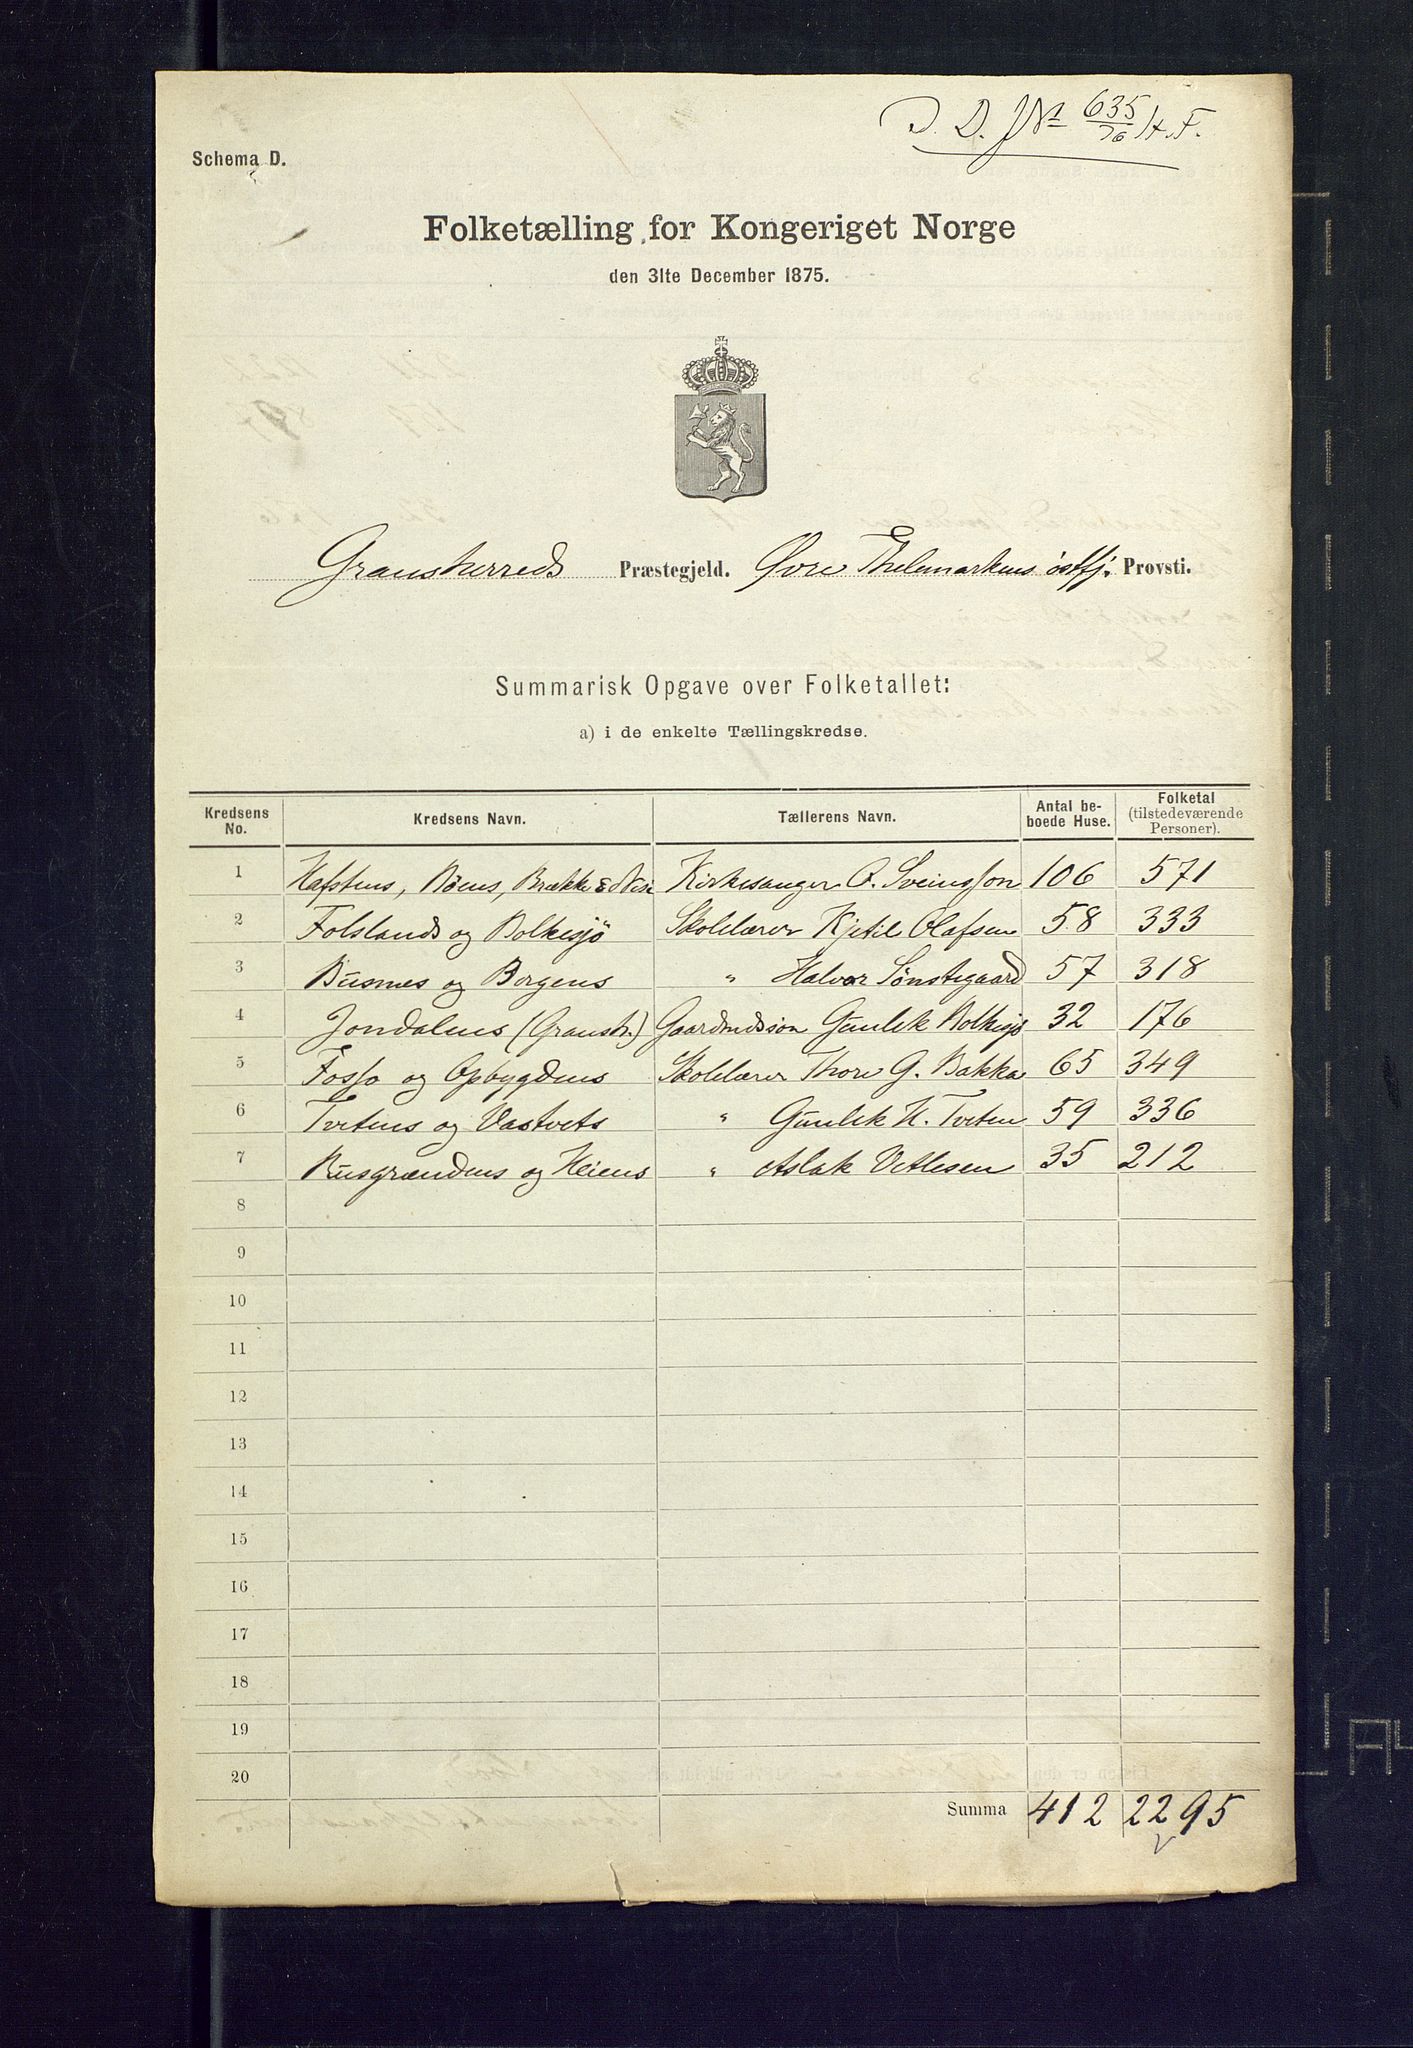 D. D. J№ 635/76 H. F.
Schema D.
Folketælling for Kongeriget Norge
den 31te December 1875.
Gransherreds Præstegjeld. Øvre Thelemarkens østfj. Provsti.
Summarisk Opgave over Folketallet:
a) i de enkelte Tællingskredse.
Kredsens No. Kredsens Navn. Tællerens Navn. Antal beboede Huse. Folketal (tilstedeværende Personer).
1 Hafstens, Bøens, Brække & Kirkesanger O. Sveinsson 106 571
2 Folslands og Bolkesjö Skolelærer Kjetil Olafsen 58 333
3 Busnes og Borgens " Halvor Sønstegaard 57 318
4 Jondalens (Gransh.) Gaardmdssøn Gunlek Bolkesjø 32 176
5 Fosso og Opbygdens Skolelærer Thore G. Bakka 65 349
6 Tvetens og Vastvets " Gunlek H. Tveten 59 336
7 Busgrændens og Heiens " Aslak Vetlesen 35 212
8
9
10
11
12
13
14
15
16
17
18
19
20
Summa 412 2295